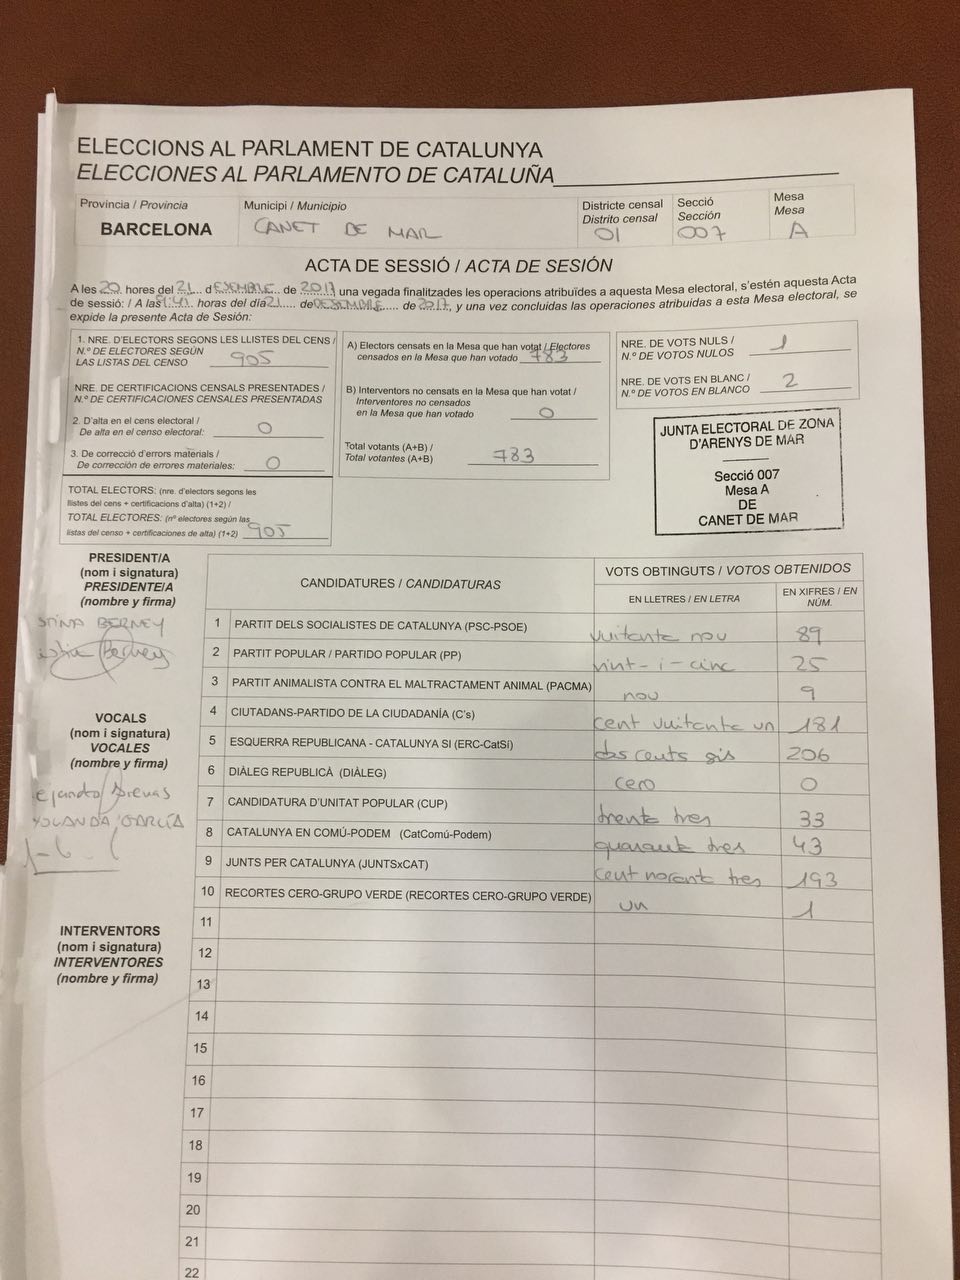 ELECCIONS AL PARLAMENT DE CATALUNYA
ELECCIONES AL PARLAMENTO DE CATALUÑA
Provincia / Provincia
BARCELONA
Municipi / Municipio
CANET DE MAR
Districte censal
Distrito censal
01
Secció
Sección
007
Mesa
Mesa
A
ACTA DE SESSIÓ / ACTA DE SESIÓN
A les 20 hores del 21 d DESEMBRE de 2017 una vegada finalitzades les operacions atribuïdes a aquesta Mesa electoral, s'estén aquesta Acta
de sessió: / A las 21:41 horas del día 21 de DESEMBRE de 2017, y una vez concluidas las operaciones atribuidas a esta Mesa electoral, se
expide la presente Acta de Sesión:
1. NRE. D'ELECTORS SEGONS LES LLISTES DEL CENS /
N.º DE ELECTORES SEGÚN
LAS LISTAS DEL CENSO 905
NRE. DE CERTIFICACIONS CENSALS PRESENTADES /
N.º DE CERTIFICACIONES CENSALES PRESENTADAS
2. D'alta en el cens electoral /
De alta en el censo electoral: 0
3. De correcció d'errors materials /
De corrección de errores materiales: 0
TOTAL ELECTORS: (nre. d'electors segons les
llistes del cens + certificacions d'alta) (1+2) /
TOTAL ELECTORES: (nº electores según las
listas del censo + certificaciones de alta) (1+2) 905
A) Electors censats en la Mesa que han votat / Electores
censados en la Mesa que han votado 783
B) Interventors no censats en la Mesa que han votat /
Interventores no censados
en la Mesa que han votado 0
Total votants (A+B) /
Total votantes (A+B) 783
NRE. DE VOTS NULS /
N.º DE VOTOS NULOS 1
NRE. DE VOTS EN BLANC /
N.º DE VOTOS EN BLANCO 2
JUNTA ELECTORAL DE ZONA
D'ARENYS DE MAR
Secció 007
Mesa A
DE
CANET DE MAR
PRESIDENT/A
(nom i signatura)
PRESIDENTE/A
(nombre y firma)
STINA BERNEY
Berney
VOCALS
(nom i signatura)
VOCALES
(nombre y firma)
ejandro Arenas
YOLANDA GARCÍA
INTERVENTORS
(nom i signatura)
INTERVENTORES
(nombre y firma)
CANDIDATURES / CANDIDATURAS
VOTS OBTINGUTS / VOTOS OBTENIDOS
EN LLETRES / EN LETRA
EN XIFRES / EN NÚM.
1 PARTIT DELS SOCIALISTES DE CATALUNYA (PSC-PSOE) vuitanta nou 89
2 PARTIT POPULAR / PARTIDO POPULAR (PP) vint-i-cinc 25
3 PARTIT ANIMALISTA CONTRA EL MALTRACTAMENT ANIMAL (PACMA) nou 9
4 CIUTADANS-PARTIDO DE LA CIUDADANÍA (C's) cent vuitanta un 181
5 ESQUERRA REPUBLICANA - CATALUNYA SI (ERC-CatSí) dos cents sis 206
6 DIÀLEG REPUBLICÀ (DIÀLEG) cero 0
7 CANDIDATURA D'UNITAT POPULAR (CUP) trenta tres 33
8 CATALUNYA EN COMÚ-PODEM (CatComú-Podem) quaranta tres 43
9 JUNTS PER CATALUNYA (JUNTSxCAT) cent noranta tres 193
10 RECORTES CERO-GRUPO VERDE (RECORTES CERO-GRUPO VERDE) un 1
11
12
13
14
15
16
17
18
19
20
21
22